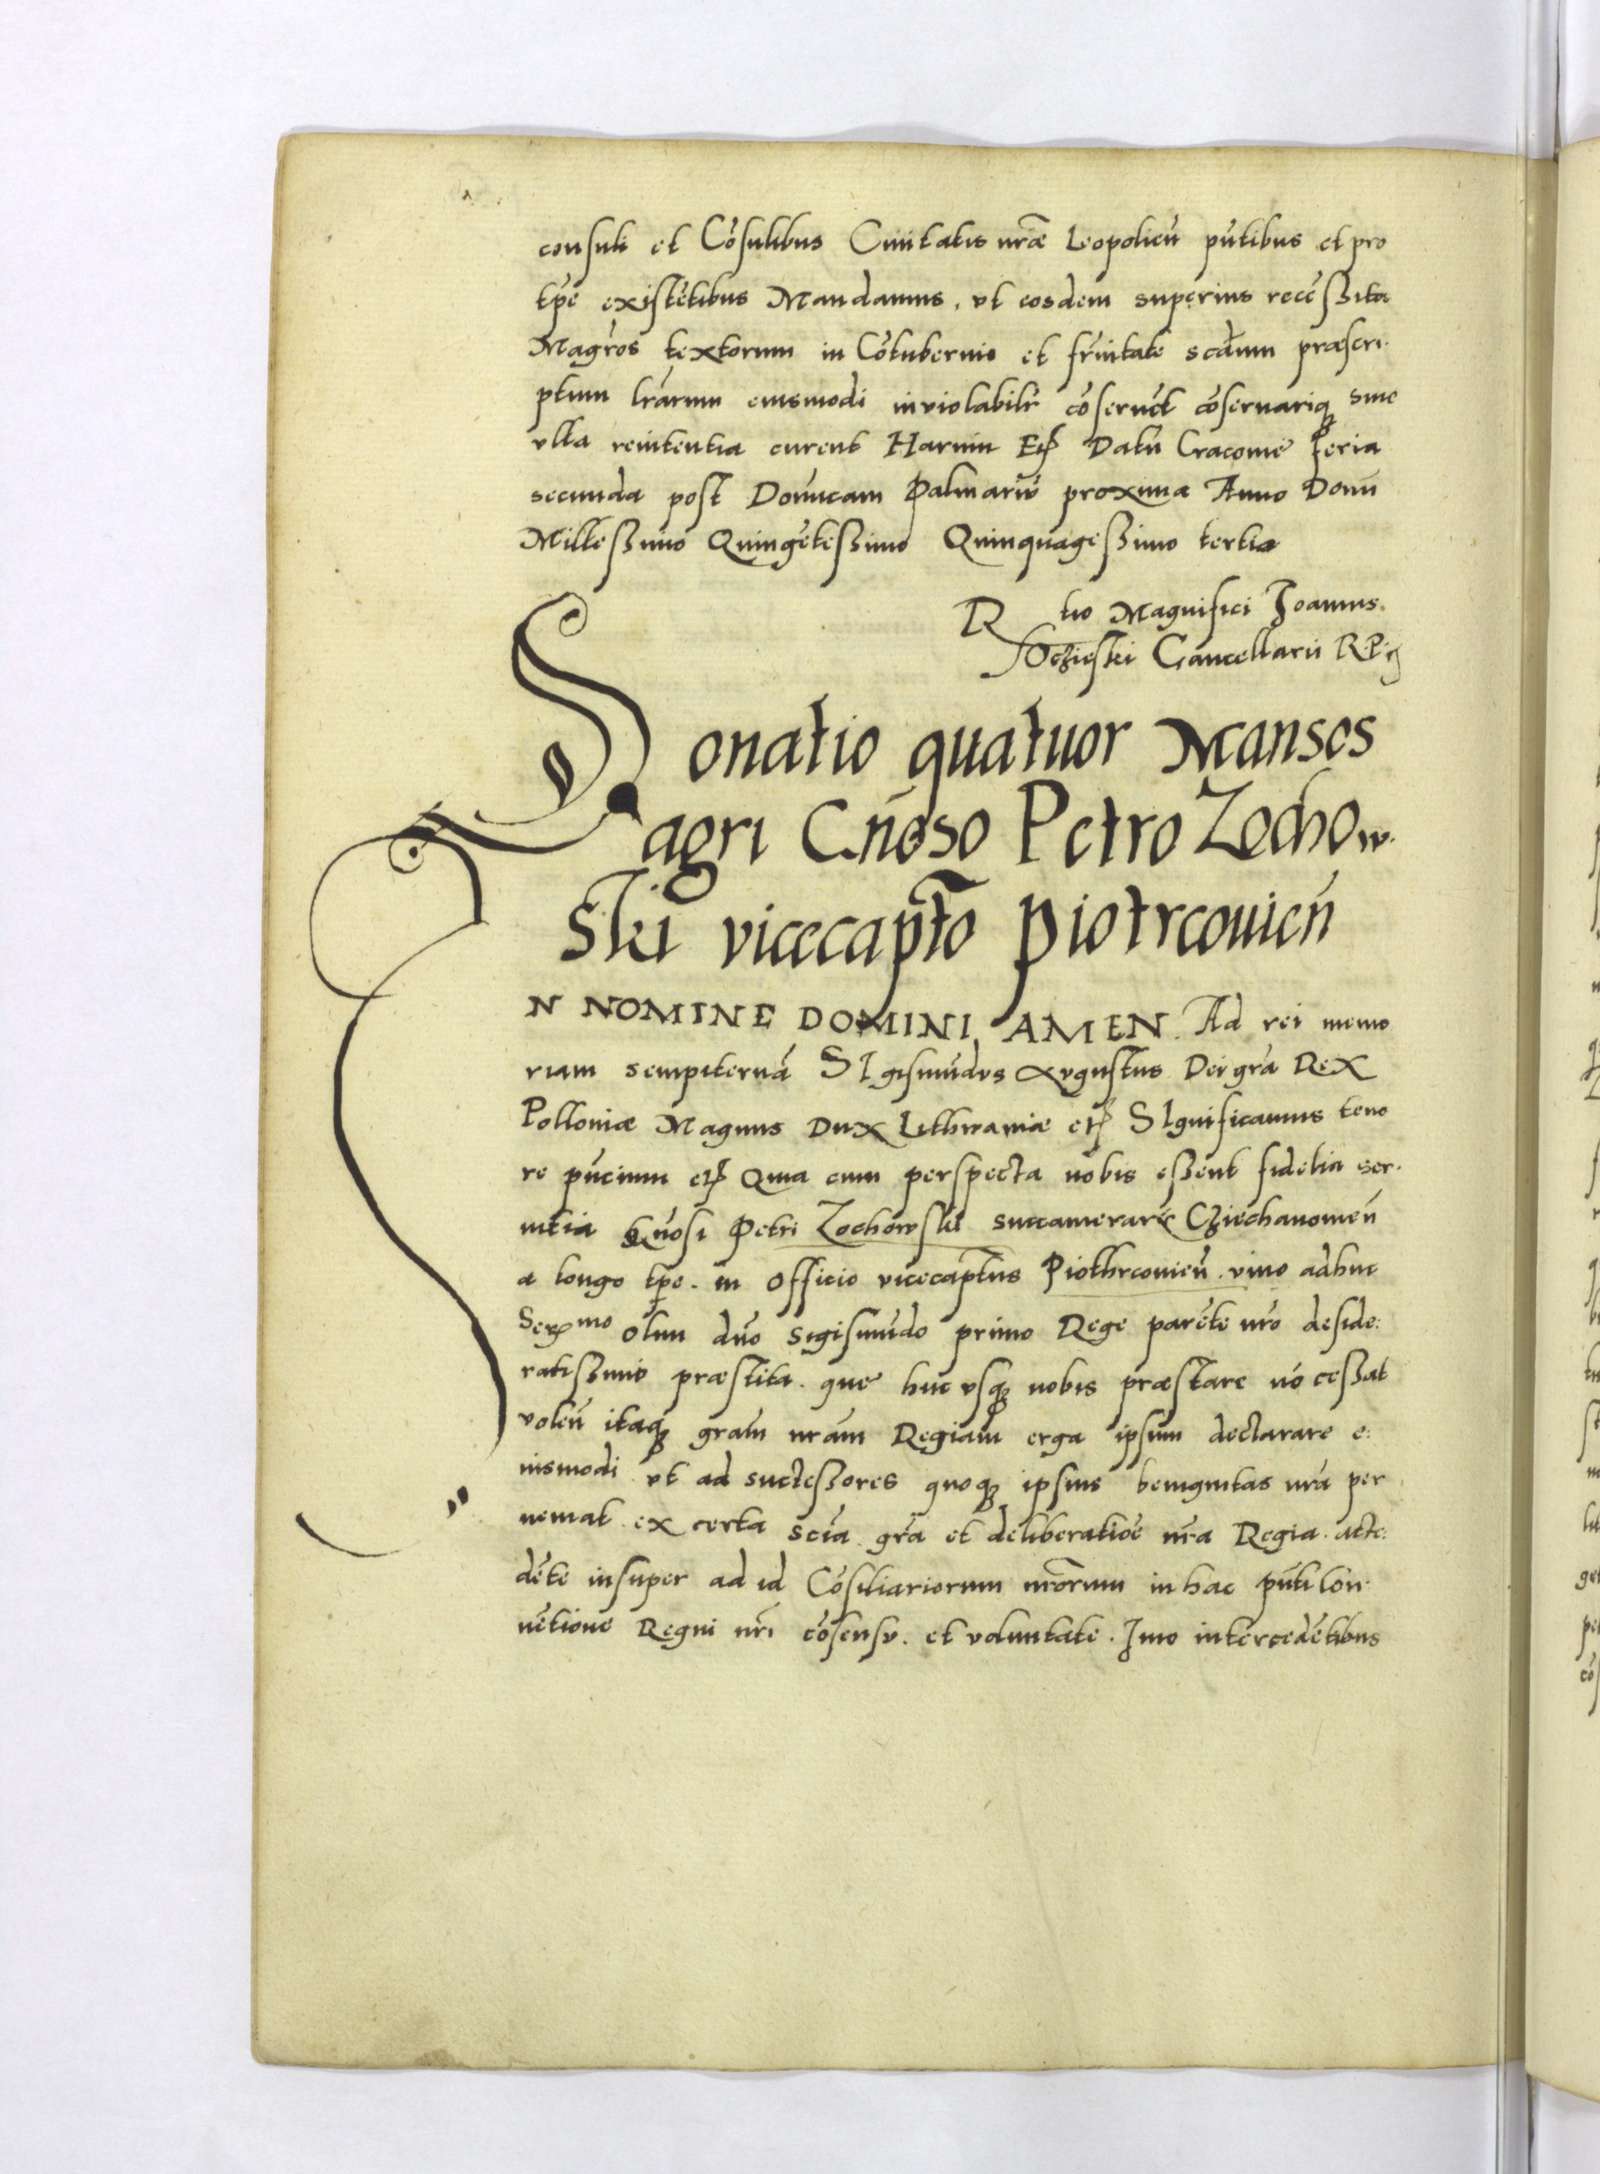 consuli et Cōsulibus Ciuitatis nr̄æ Leopolien̄ pn̄tibus et pro
tp̄e existētibus Mandamus, vt eosdem superius recēssitos
Magr̄os textorum in Cōtubernio et fr̄nitate scd̄um præscri-
ptum lr̄arum eiusmodi inviolabilr̄ cōseruēt cōseruariq̨ sine
vlla renitentia curent Harum Etc̄ Datū Cracouie Feria
secunda post Domīcam Palmarū proxima Anno Domī
Millessimo Quingētessimo Quinquagessimo tertio
R tio Magnifici Joannis
Oczieski Cancellarii R P: etc
Donatio quatuor Mansos
agri Gn̄oso Petro Zochow-
ski vicecapt̄o Piotrcouien̄
IN NOMINE DOMINI AMEN. Ad rei memo
riam sempiternā SIgismūdvs Avgustus Dei gr̄a Rex
Polloniæ Magnus Dux Lithwaniæ etc̄ SIgnificamus teno
re pn̄cium etc̄ Quia cum perspecta nobis essent fidelia ser-
uitia Gn̄osi Petri Zochowski succamerarii Cziechanouien̄
a longo tp̄e. in officio vicecaptn̄s Piothrcouien̄. viuo adhuc
Ser mo olim dn̄o Sigismūdo primo Rege parēte nr̄o deside:
ratissimo præstita. que huc vsq̨ nobis præstare nō cessat
volen̄ itaq̨ gr̄am nr̄am Regiam erga ipsum declarare e:
iusmodi vt ad successores quoq̨ ipsius benignitas nr̄a per
ueniat. ex certa scīa. gr̄a et deliberatiōe nr̄a Regia. acce:
dēte insuper ad id Cōsiliariorum nr̄orum in hac pn̄ti Cōn-
uētione Regni nr̄i cōsensv. et voluntate. Imo intercedētibus